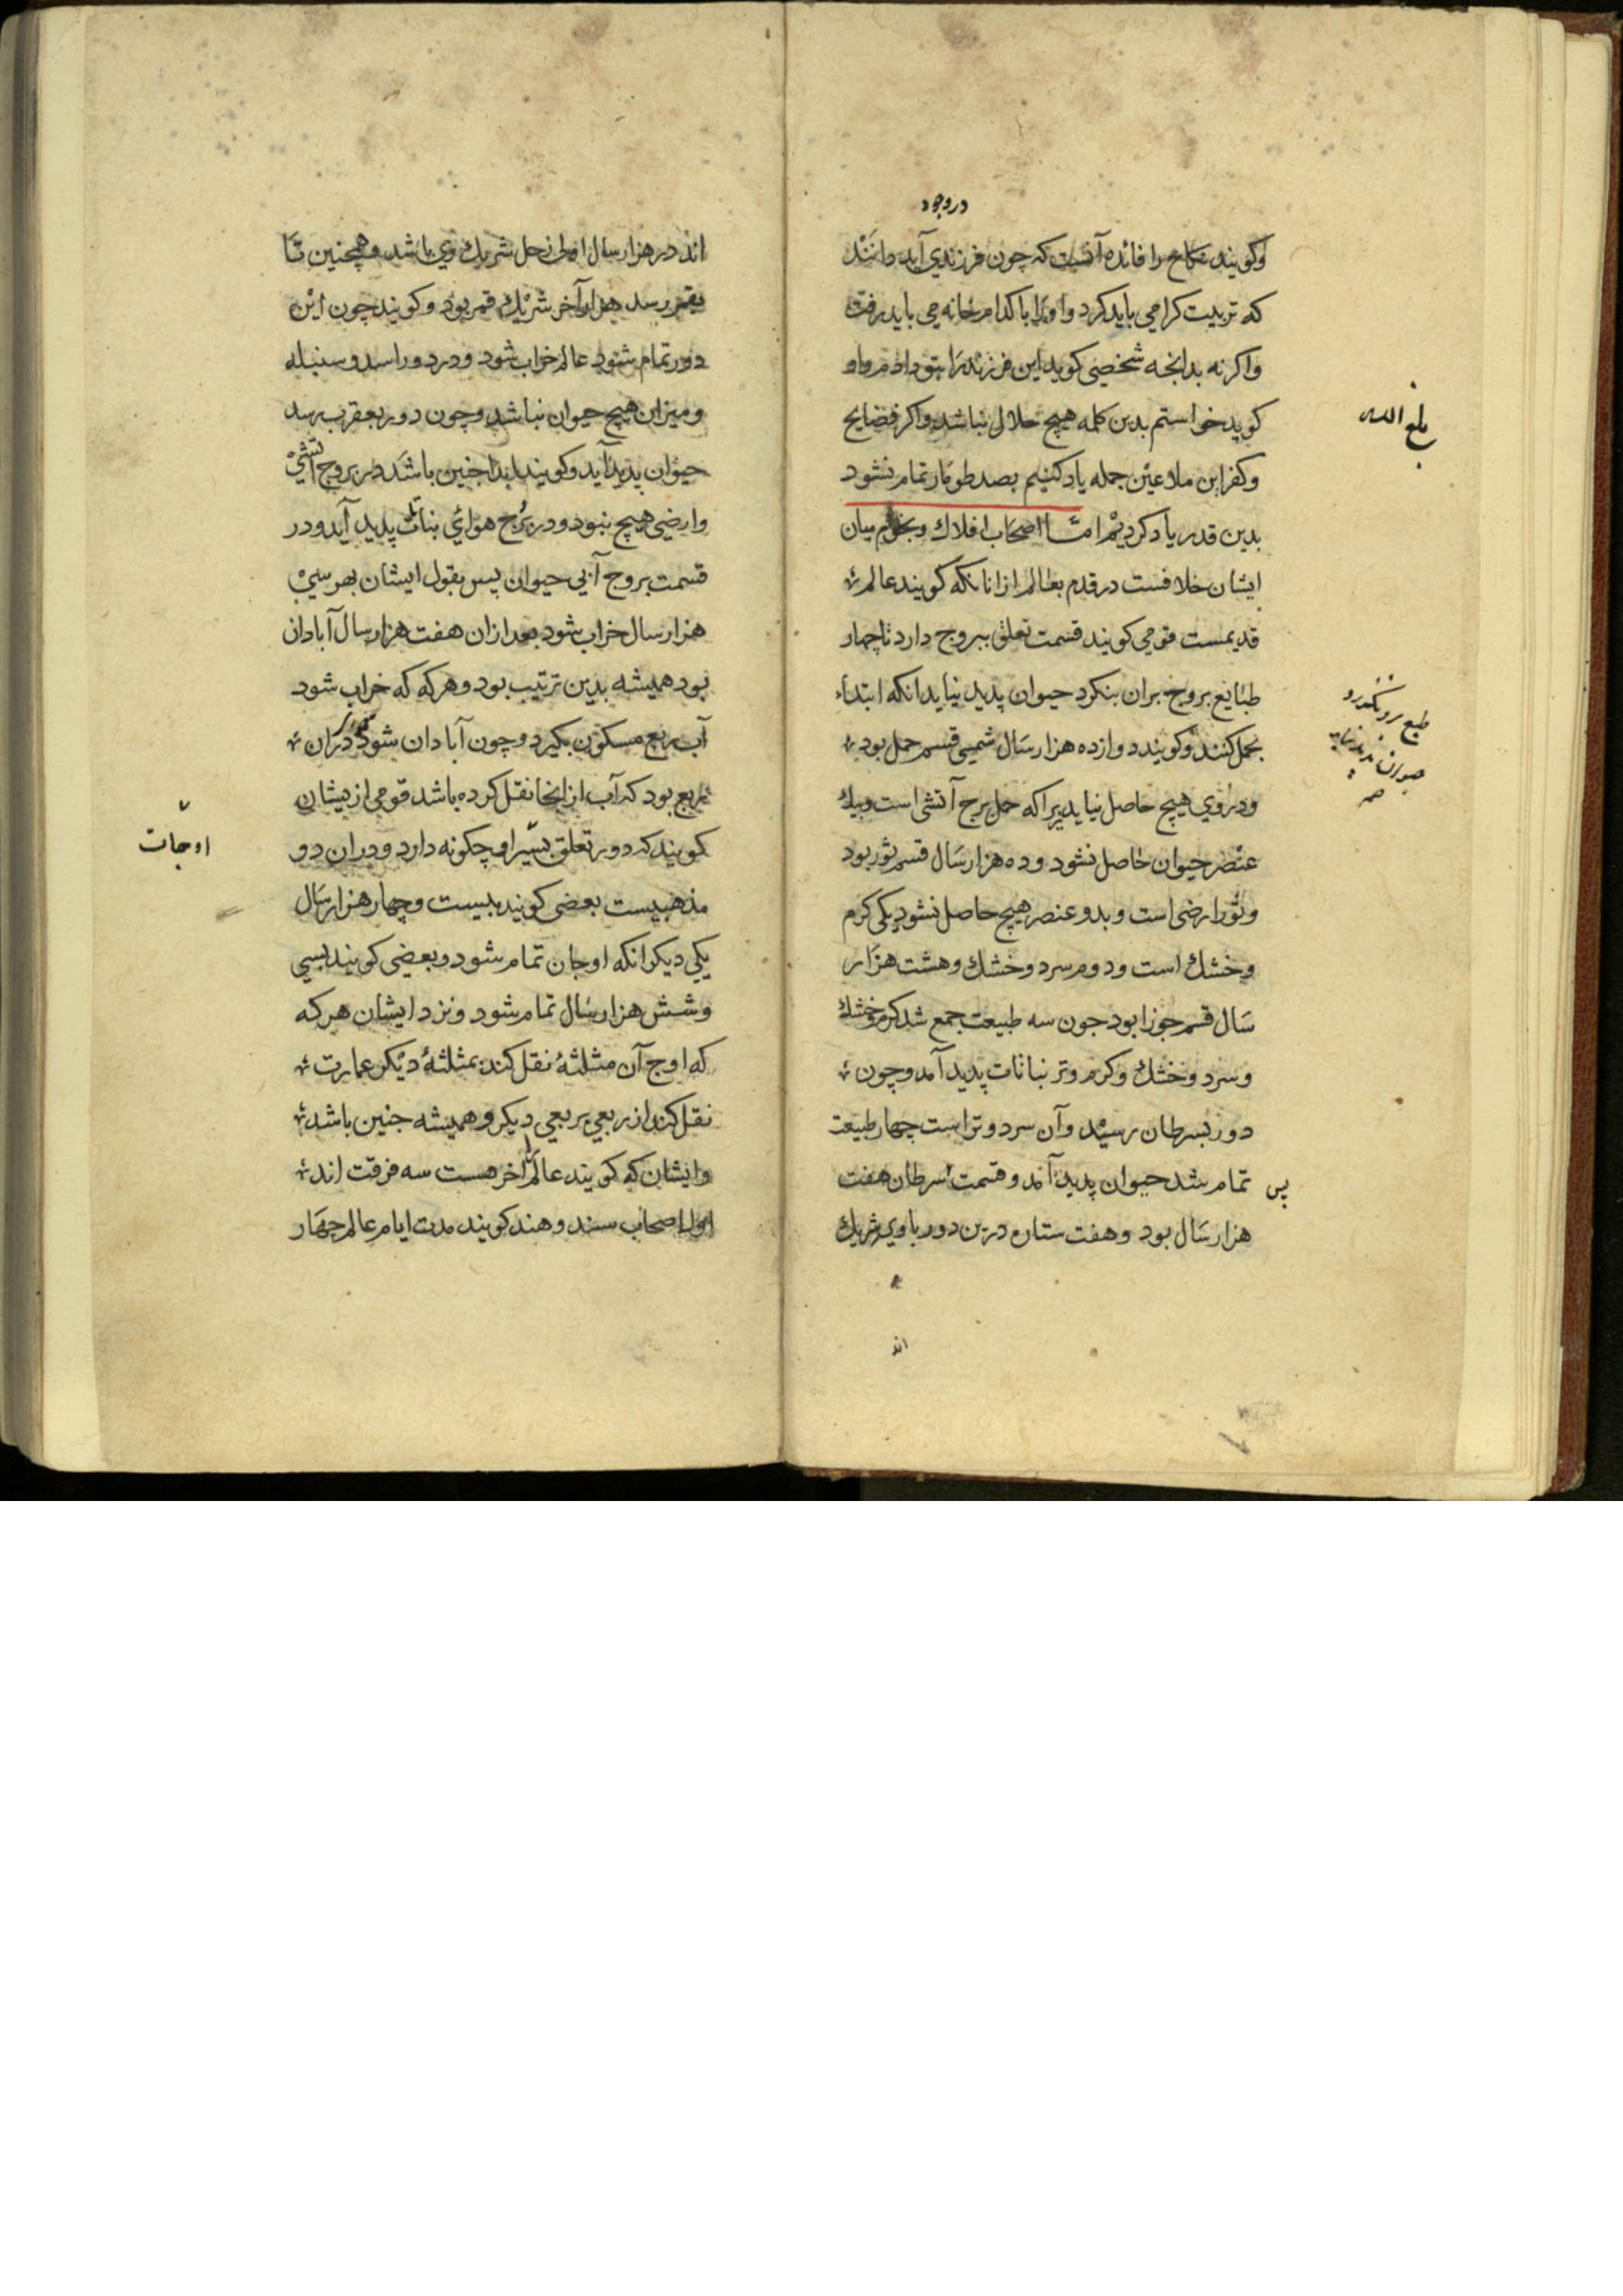 در وجود
وکویند نکاح را فائده آنست که چون فرزندی آید دانند
که تربیت کرا می باید کرد واو را با کدام خانه می باید رفت
واکر نه بدانجه شخصی کوید این فرزند را بتو دادم واو
کوید خواستم بدین کلمه هیچ حلال نباشد واکر فضایح
بلغ الله
وکفر این ملاعین جمله یاد کنیم بصد طومار تمام نشود
بدین قدر یاد کردیم امّا اصحاب افلاك ونجوم میان
ایشان خلافست در قدم عالم ازانانکه کویند عالم
قدیمست قومی کویند قسمت تعلق ببروج دارد تا چهار
طبایع بروج بران بنکرد حیوان پدید نیاید انکه ابتداء
بحمل کنند وکویند دوازده هزار سال شمسی قسم حمل بود
ودر وی هیچ حاصل نیاید زیرا که حمل برج آتشی است وبیك
عنصر حیوان حاصل نشود وده هزار سال قسم ثور بود
وثور ارضی است وبدو عنصر هیچ حاصل نشود یکی کرم
وخشك است ودوم سرد وخشك وهشت هزار
سال قسم جوزا بود جون سه طبیعت جمع شد کرم وخشك
وسرد وخشك وکرم وتر نباتات پدید آمد وچون
دور بسرطان رسید وآن سرد وتر است چهار طبیعت
تمام شد حیوان پدید آمد وقسمت سرطان هفت
پس
هزار سال بود وهفت ستاره درین دور با وی شریك
اند
اند در هزار سال اول زحل شریك وی باشد وهمچنین تا
بقمر رسد هزار آخر شریك قمر بود وکویند چون این
دور تمام شود عالم خراب شود ودر دور اسد وسنبله
ومیزان هیچ حیوان نباشد وچون دور بعقرب رسد
حیوان پدید آید وکویند ابدا جنین باشد در بروج آتشی
وارضی هیچ نبود ودر برج هوائی نبات پدید آید ودر
قسمت بروج آبی حیوان پس بقول ایشان بهر سی
هزار سال خراب شود بعد ازان هفت هزار سال آبادان
بود همیشه بدین ترتیب بود وهرکه که خراب شود
آب ربع مسکون بکیرد وچون آبادان شود دران
ربع بود که آب از انجا نقل کرده باشد قومی از یشان
کویند که دور تعلق بسیر اوجات چکونه دارد ودران دو
مذهبست بعضی کویند ببیست وچهار هزار سال
یکی دیکر انکه اوجان تمام شود وبعضی کویند بسی
وشش هزار سال تمام شود ونزد ایشان هرکه
که اوج آن مثلثهٔ نقل کند بمثلثهٔ دیکر عمارت
نقل کند از ربعی بربعی دیکر وهمیشه جنین باشد
وایشان که کویند عالم را آخر هست سه فرقت اند
اول اصحاب سند وهند کویند مدت ایام عالم چهار
اوجات